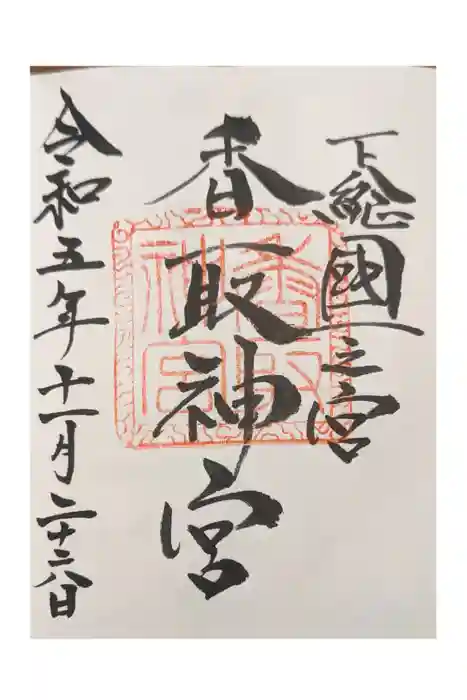 下総國一之宮
香取神宮
令和五年十一月二十六日
香取神宮